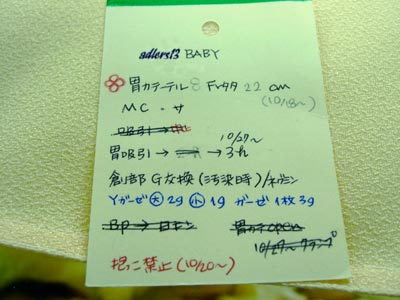 adlers13 BABY
胃カテーテル 8Fr タタ 22cm
(10/18〜)
MC・サ
吸引→
10/27〜
胃吸引→ → 3れ
創部G交換(汚染時)/ネオミン
Yガーゼ 大 2g 小 1g ガーゼ1枚3g
BP→ 日キン 胃カテopen
10/27〜クランプ
抱っこ禁止(10/20〜)